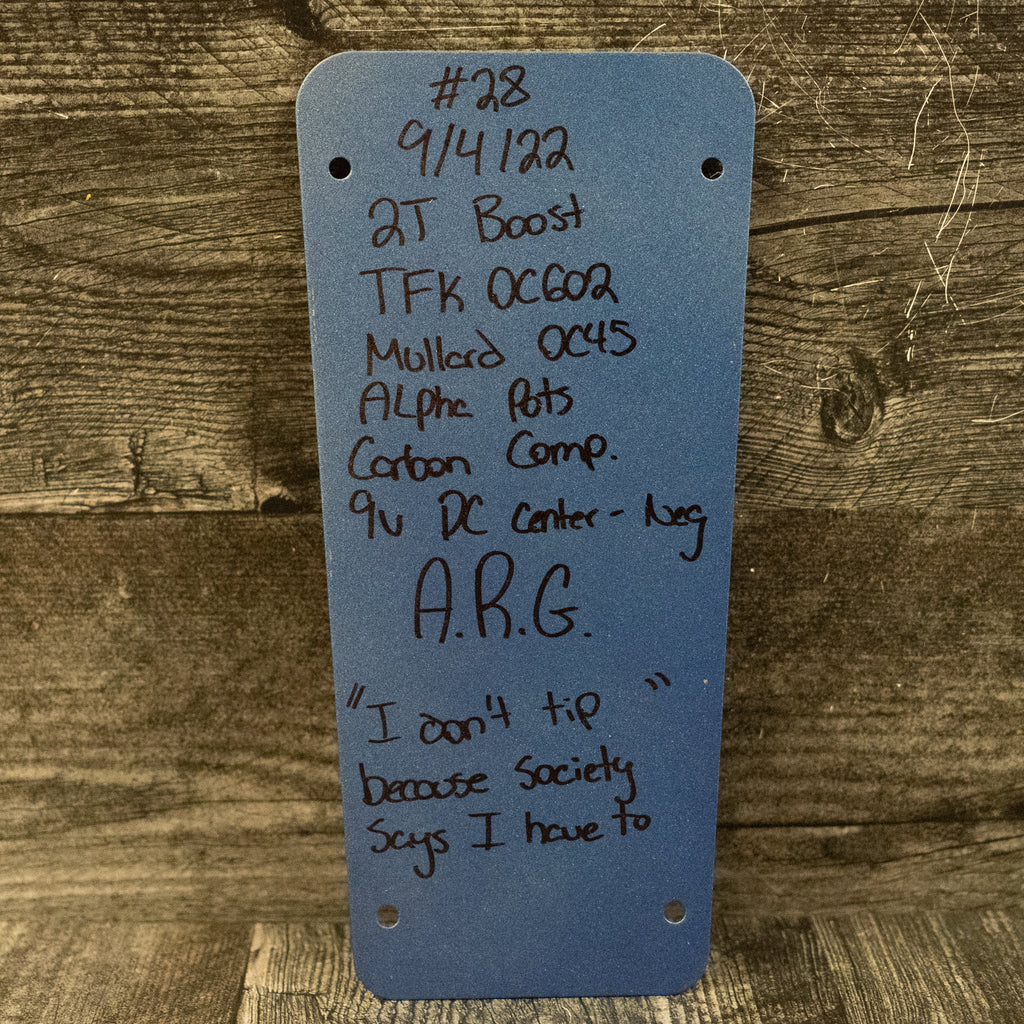 #28
9/4/22
2T Boost
TFK OC602
Mullard OC45
ALpha Pots
Carbon Comp.
9v DC Center - Neg
A.R.G.
"I don't tip"
because Society
Says I have to